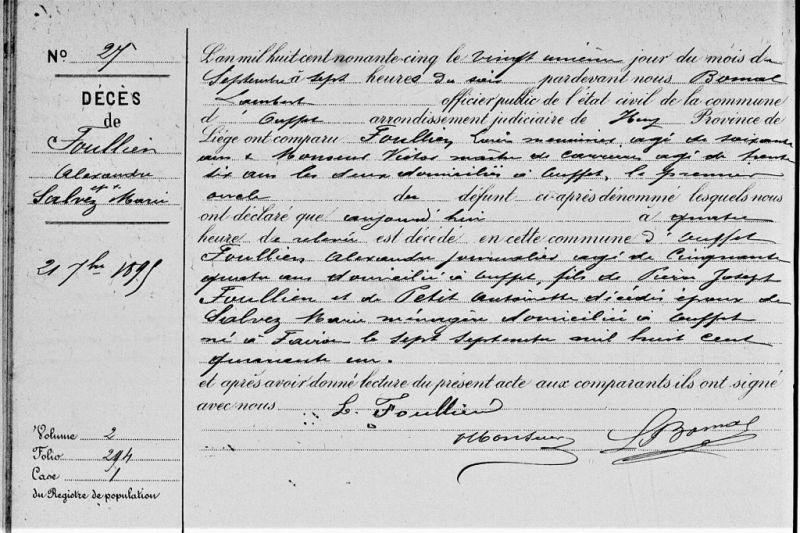 No 27
DÉCÈS
de
Foullien
Alexandre
et
Salvez Marie
21 7bre 1895
Volume 2
Folio 294
Case 1
du Registre de population
L'an mil huit cent nonante-cinq le vingt unième jour du mois de
Septembre à sept heures du soir pardevant nous Bomal
Lambert officier public de l'état civil de la commune
d'Ouffet arrondissement judiciaire de Huy Province de
Liège ont comparu Foullien Louis menuisier agé de soixante
ans & Monseur Victor maître de carrières agé de trente
six ans les deux domiciliés à Ouffet, le premier
oncle du défunt ci-après dénommé lesquels nous
ont déclaré que aujourd'hui à quatre
heure de relevée est décédé en cette commune d'Ouffet
Foullien Alexandre journalier agé de Cinquante
quatre ans domicilié à Ouffet, fils de Pierre Joseph
Foullien et de Petit Antoinette décédés époux de
Salvez Marie ménagère domiciliée à Ouffet
né à le sept Septembre mil huit cent
quarante un.
et après avoir donné lecture du présent acte aux comparants ils ont signé
avec nous L. Foullien
Monseur L Bomal